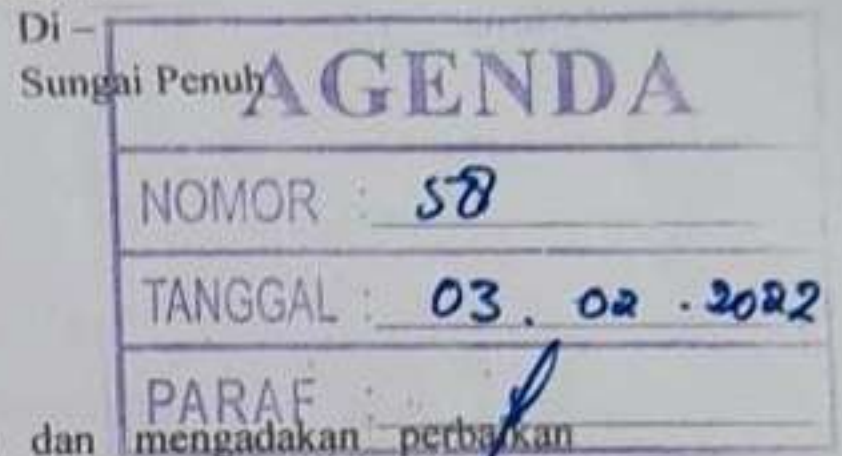 Di –
Sungai Penuh
AGENDA
NOMOR : 58
TANGGAL : 03. 02 . 2022
PARAF :
dan mengadakan perbaikan